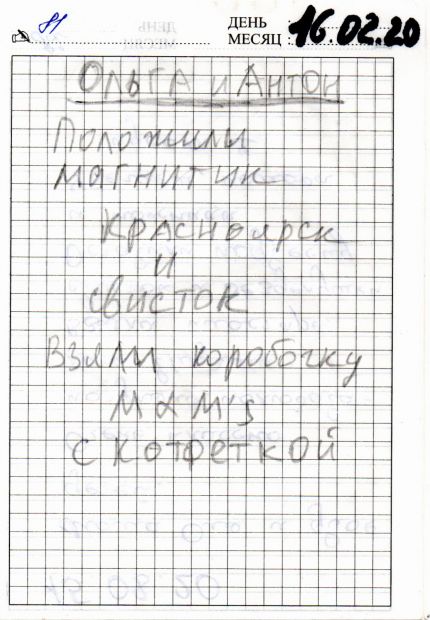 81
ДЕНЬ
МЕСЯЦ : 16.02.20
Ольга и Антон
Положили
магнитик
Красноярск
и
свисток
Взяли коробочку
M&M's
с котфеткой